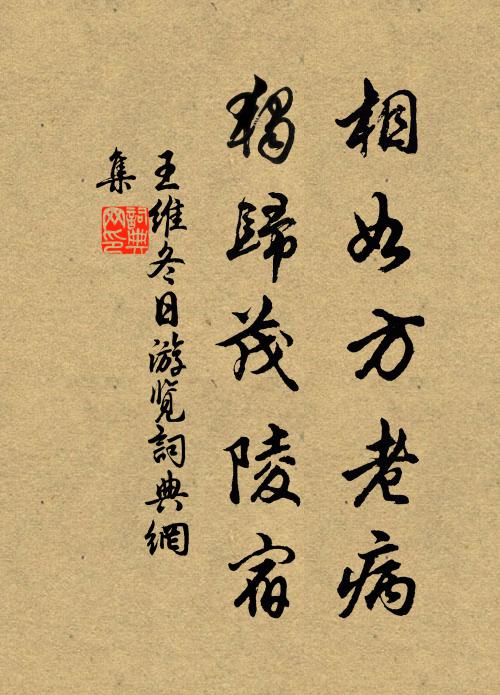 相如方老病
獨歸茂陵宿
王維冬日游覽詞典網
集
詞典网印